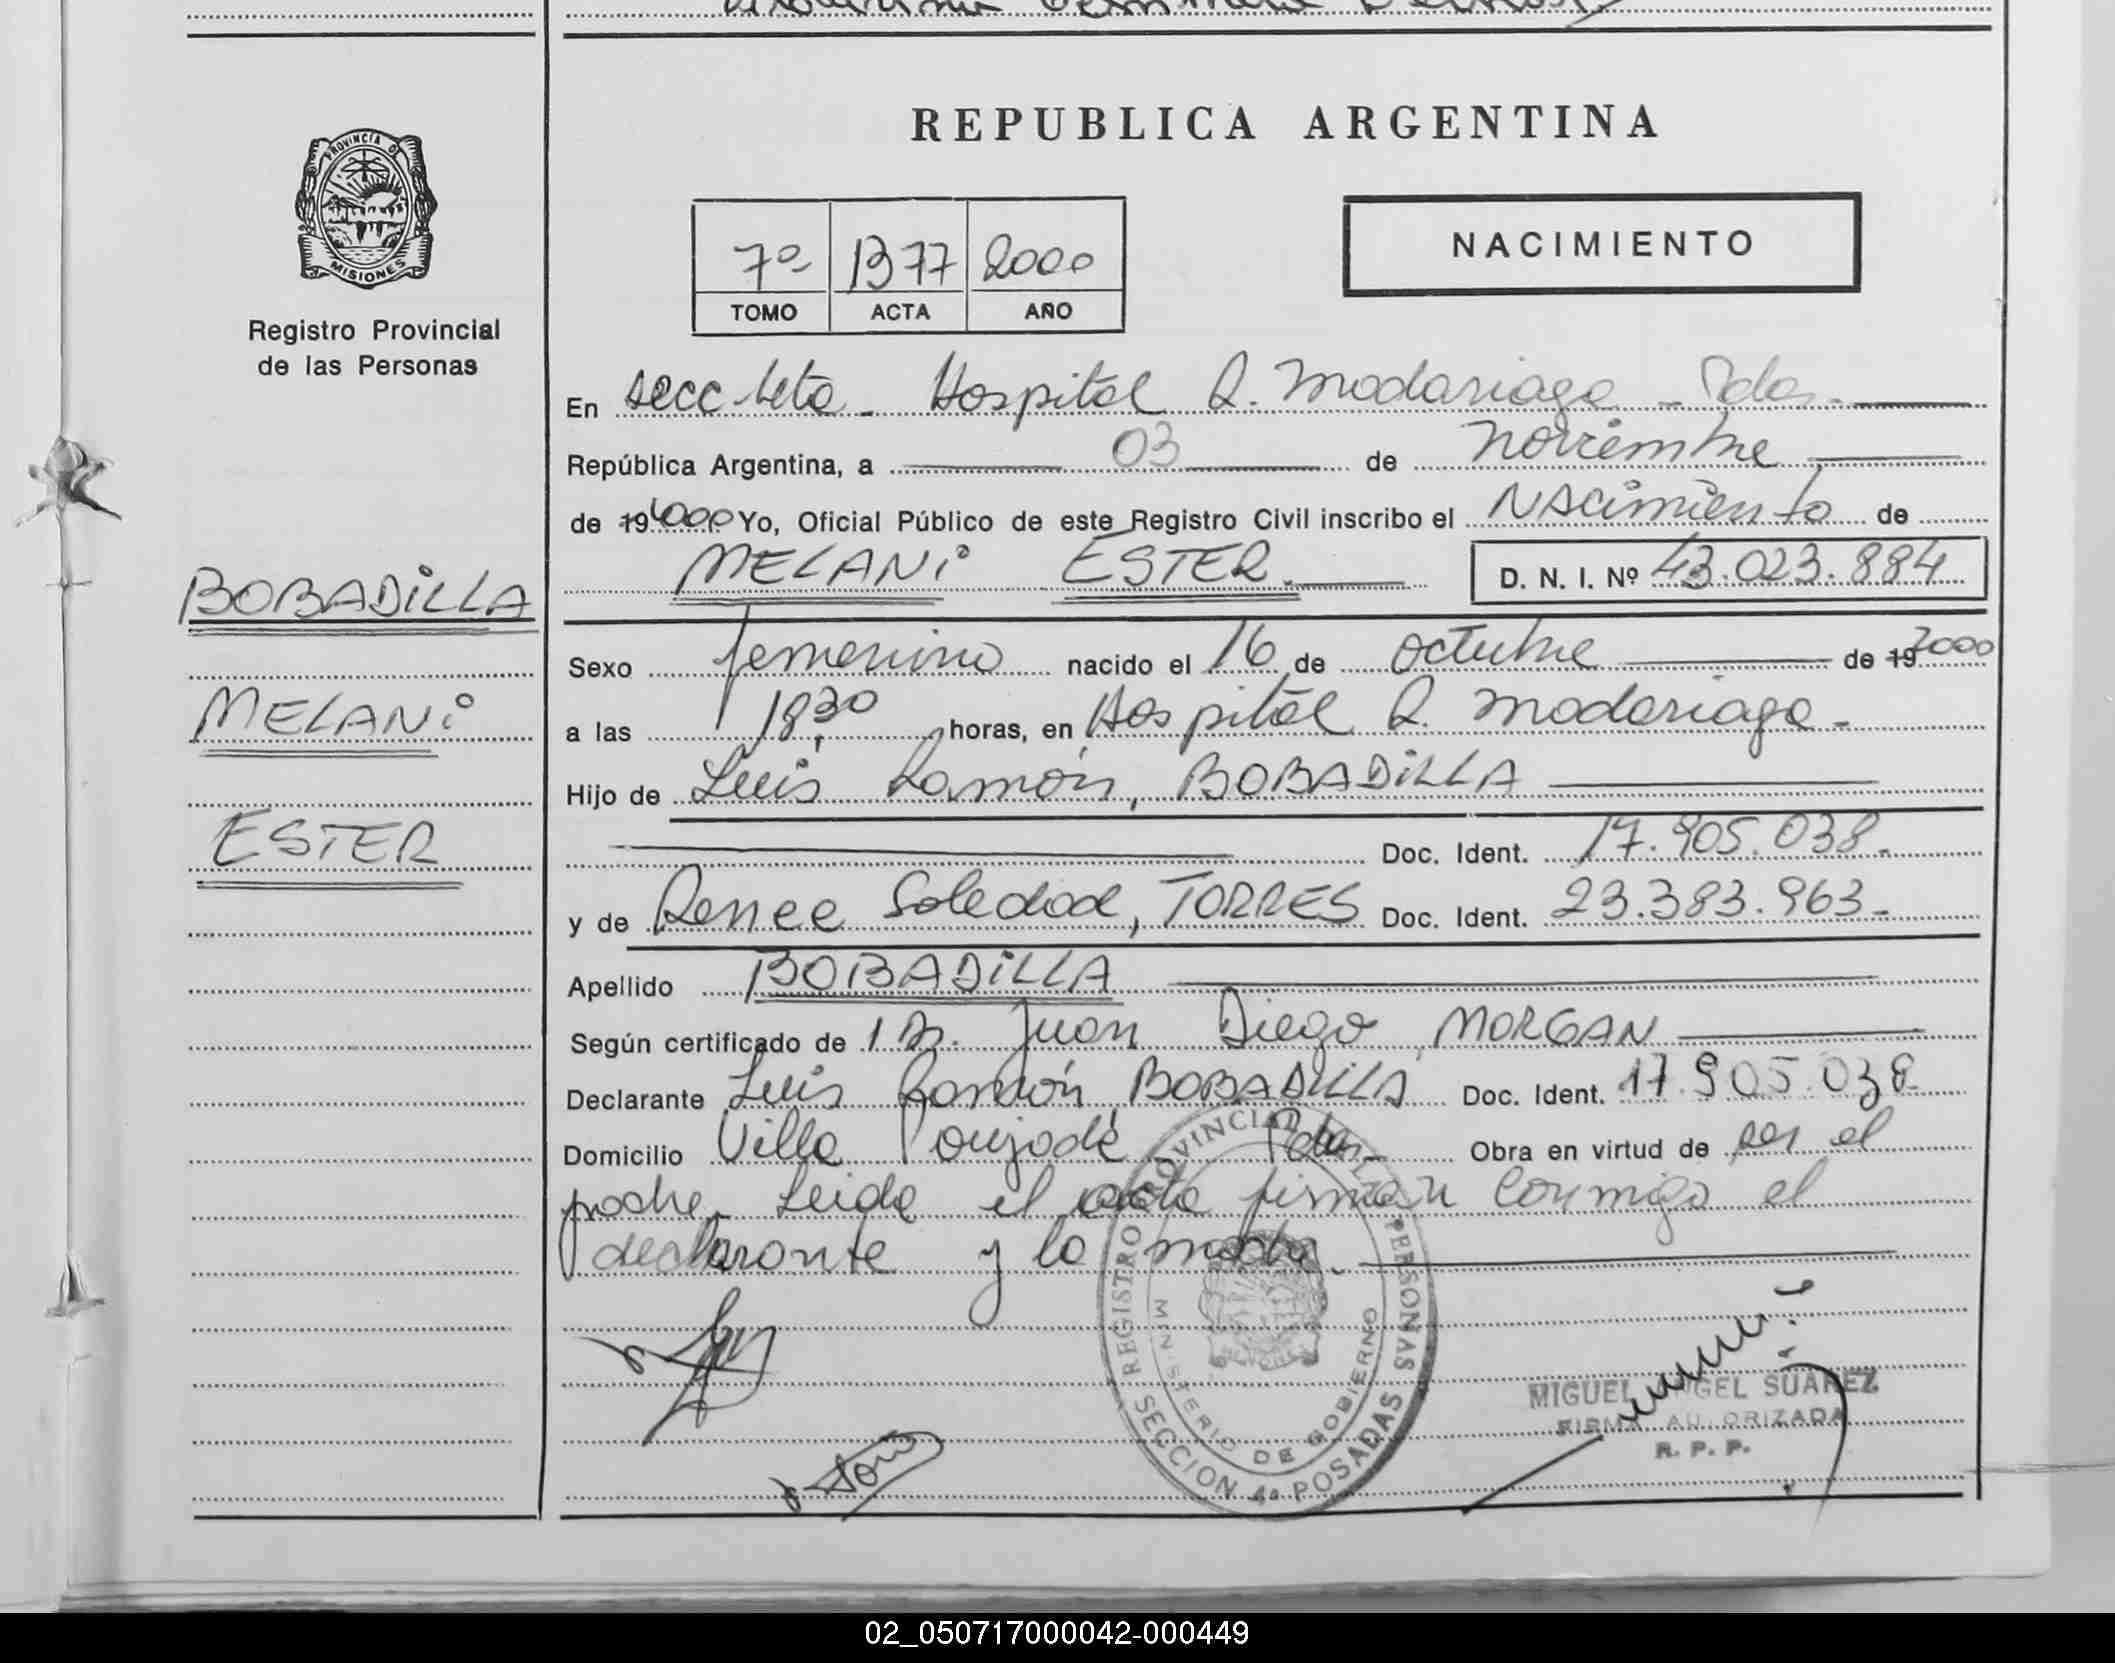 REPUBLICA ARGENTINA
PROVINCIA DE
MISIONES
Registro Provincial
de las Personas
NACIMIENTO
7º 1377 2000
TOMO ACTA AÑO
En secc 4ta - Hospital R. Madariaga - Pdas.
República Argentina, a 03 de noviembre
de 19 2000 Yo, Oficial Público de este Registro Civil inscribo el NAcimiento de
MELANi ESTER. D. N. I. Nº 43.023.884
BOBADiLLA
MELANi
ESTER
Sexo femenino nacido el 16 de octubre de 19 2000
a las 18,30 horas, en Hospital R. Madariaga -
Hijo de Luis Ramón, BOBADiLLA
Doc. Ident. 17.905.038.
y de Renee Soledad, TORRES Doc. Ident. 23.383.963.
Apellido BOBADiLLA
Según certificado de 1 Dr. Juan Diego MORGAN
Declarante Luis Ramón BOBADiLLA Doc. Ident. 17.905.038
Domicilio Villa Poujade Pdas- Obra en virtud de ser el
padre. Leida el acta firman conmigo el
declarante y la madre.
REGISTRO PROVINCIAL DE LAS PERSONAS
MINISTERIO DE GOBIERNO
SECCION 4a POSADAS
MIGUEL ANGEL SUAREZ
FIRMA AUTORIZADA
R. P. P.
02_050717000042-000449